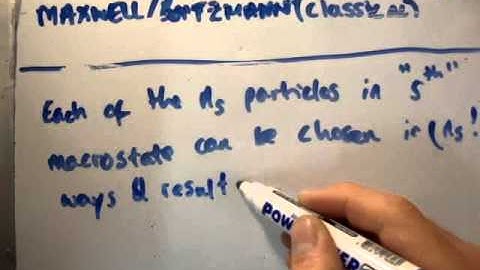 MAXWELL/BOLTZMANN (classical)
Each of the ns particles in "sth"
macrostate can be chosen in (ns!
ways & result
POW